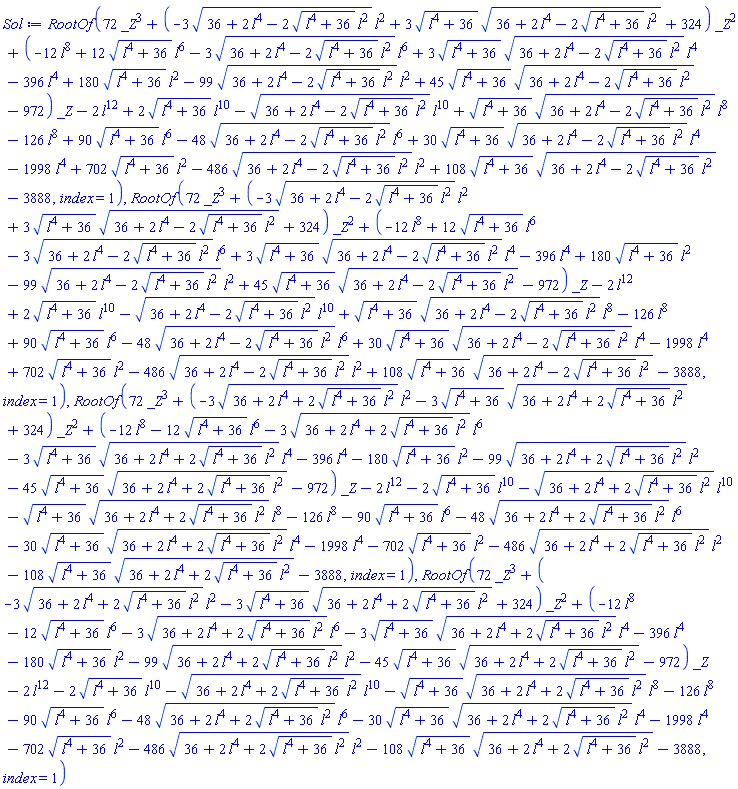 Sol := RootOf(72 _Z^3 + (-3 √(36 + 2 l^4 - 2 √(l^4 + 36) l^2) l^2 + 3 √(l^4 + 36) √(36 + 2 l^4 - 2 √(l^4 + 36) l^2) + 324) _Z^2
+ (-12 l^8 + 12 √(l^4 + 36) l^6 - 3 √(36 + 2 l^4 - 2 √(l^4 + 36) l^2) l^6 + 3 √(l^4 + 36) √(36 + 2 l^4 - 2 √(l^4 + 36) l^2) l^4
- 396 l^4 + 180 √(l^4 + 36) l^2 - 99 √(36 + 2 l^4 - 2 √(l^4 + 36) l^2) l^2 + 45 √(l^4 + 36) √(36 + 2 l^4 - 2 √(l^4 + 36) l^2)
- 972) _Z - 2 l^12 + 2 √(l^4 + 36) l^10 - √(36 + 2 l^4 - 2 √(l^4 + 36) l^2) l^10 + √(l^4 + 36) √(36 + 2 l^4 - 2 √(l^4 + 36) l^2) l^8
- 126 l^8 + 90 √(l^4 + 36) l^6 - 48 √(36 + 2 l^4 - 2 √(l^4 + 36) l^2) l^6 + 30 √(l^4 + 36) √(36 + 2 l^4 - 2 √(l^4 + 36) l^2) l^4
- 1998 l^4 + 702 √(l^4 + 36) l^2 - 486 √(36 + 2 l^4 - 2 √(l^4 + 36) l^2) l^2 + 108 √(l^4 + 36) √(36 + 2 l^4 - 2 √(l^4 + 36) l^2)
- 3888, index = 1), RootOf(72 _Z^3 + (-3 √(36 + 2 l^4 - 2 √(l^4 + 36) l^2) l^2
+ 3 √(l^4 + 36) √(36 + 2 l^4 - 2 √(l^4 + 36) l^2) + 324) _Z^2 + (-12 l^8 + 12 √(l^4 + 36) l^6
- 3 √(36 + 2 l^4 - 2 √(l^4 + 36) l^2) l^6 + 3 √(l^4 + 36) √(36 + 2 l^4 - 2 √(l^4 + 36) l^2) l^4 - 396 l^4 + 180 √(l^4 + 36) l^2
- 99 √(36 + 2 l^4 - 2 √(l^4 + 36) l^2) l^2 + 45 √(l^4 + 36) √(36 + 2 l^4 - 2 √(l^4 + 36) l^2) - 972) _Z - 2 l^12
+ 2 √(l^4 + 36) l^10 - √(36 + 2 l^4 - 2 √(l^4 + 36) l^2) l^10 + √(l^4 + 36) √(36 + 2 l^4 - 2 √(l^4 + 36) l^2) l^8 - 126 l^8
+ 90 √(l^4 + 36) l^6 - 48 √(36 + 2 l^4 - 2 √(l^4 + 36) l^2) l^6 + 30 √(l^4 + 36) √(36 + 2 l^4 - 2 √(l^4 + 36) l^2) l^4 - 1998 l^4
+ 702 √(l^4 + 36) l^2 - 486 √(36 + 2 l^4 - 2 √(l^4 + 36) l^2) l^2 + 108 √(l^4 + 36) √(36 + 2 l^4 - 2 √(l^4 + 36) l^2) - 3888,
index = 1), RootOf(72 _Z^3 + (-3 √(36 + 2 l^4 + 2 √(l^4 + 36) l^2) l^2 - 3 √(l^4 + 36) √(36 + 2 l^4 + 2 √(l^4 + 36) l^2)
+ 324) _Z^2 + (-12 l^8 - 12 √(l^4 + 36) l^6 - 3 √(36 + 2 l^4 + 2 √(l^4 + 36) l^2) l^6
- 3 √(l^4 + 36) √(36 + 2 l^4 + 2 √(l^4 + 36) l^2) l^4 - 396 l^4 - 180 √(l^4 + 36) l^2 - 99 √(36 + 2 l^4 + 2 √(l^4 + 36) l^2) l^2
- 45 √(l^4 + 36) √(36 + 2 l^4 + 2 √(l^4 + 36) l^2) - 972) _Z - 2 l^12 - 2 √(l^4 + 36) l^10 - √(36 + 2 l^4 + 2 √(l^4 + 36) l^2) l^10
- √(l^4 + 36) √(36 + 2 l^4 + 2 √(l^4 + 36) l^2) l^8 - 126 l^8 - 90 √(l^4 + 36) l^6 - 48 √(36 + 2 l^4 + 2 √(l^4 + 36) l^2) l^6
- 30 √(l^4 + 36) √(36 + 2 l^4 + 2 √(l^4 + 36) l^2) l^4 - 1998 l^4 - 702 √(l^4 + 36) l^2 - 486 √(36 + 2 l^4 + 2 √(l^4 + 36) l^2) l^2
- 108 √(l^4 + 36) √(36 + 2 l^4 + 2 √(l^4 + 36) l^2) - 3888, index = 1), RootOf(72 _Z^3 + (
-3 √(36 + 2 l^4 + 2 √(l^4 + 36) l^2) l^2 - 3 √(l^4 + 36) √(36 + 2 l^4 + 2 √(l^4 + 36) l^2) + 324) _Z^2 + (-12 l^8
- 12 √(l^4 + 36) l^6 - 3 √(36 + 2 l^4 + 2 √(l^4 + 36) l^2) l^6 - 3 √(l^4 + 36) √(36 + 2 l^4 + 2 √(l^4 + 36) l^2) l^4 - 396 l^4
- 180 √(l^4 + 36) l^2 - 99 √(36 + 2 l^4 + 2 √(l^4 + 36) l^2) l^2 - 45 √(l^4 + 36) √(36 + 2 l^4 + 2 √(l^4 + 36) l^2) - 972) _Z
- 2 l^12 - 2 √(l^4 + 36) l^10 - √(36 + 2 l^4 + 2 √(l^4 + 36) l^2) l^10 - √(l^4 + 36) √(36 + 2 l^4 + 2 √(l^4 + 36) l^2) l^8 - 126 l^8
- 90 √(l^4 + 36) l^6 - 48 √(36 + 2 l^4 + 2 √(l^4 + 36) l^2) l^6 - 30 √(l^4 + 36) √(36 + 2 l^4 + 2 √(l^4 + 36) l^2) l^4 - 1998 l^4
- 702 √(l^4 + 36) l^2 - 486 √(36 + 2 l^4 + 2 √(l^4 + 36) l^2) l^2 - 108 √(l^4 + 36) √(36 + 2 l^4 + 2 √(l^4 + 36) l^2) - 3888,
index = 1)